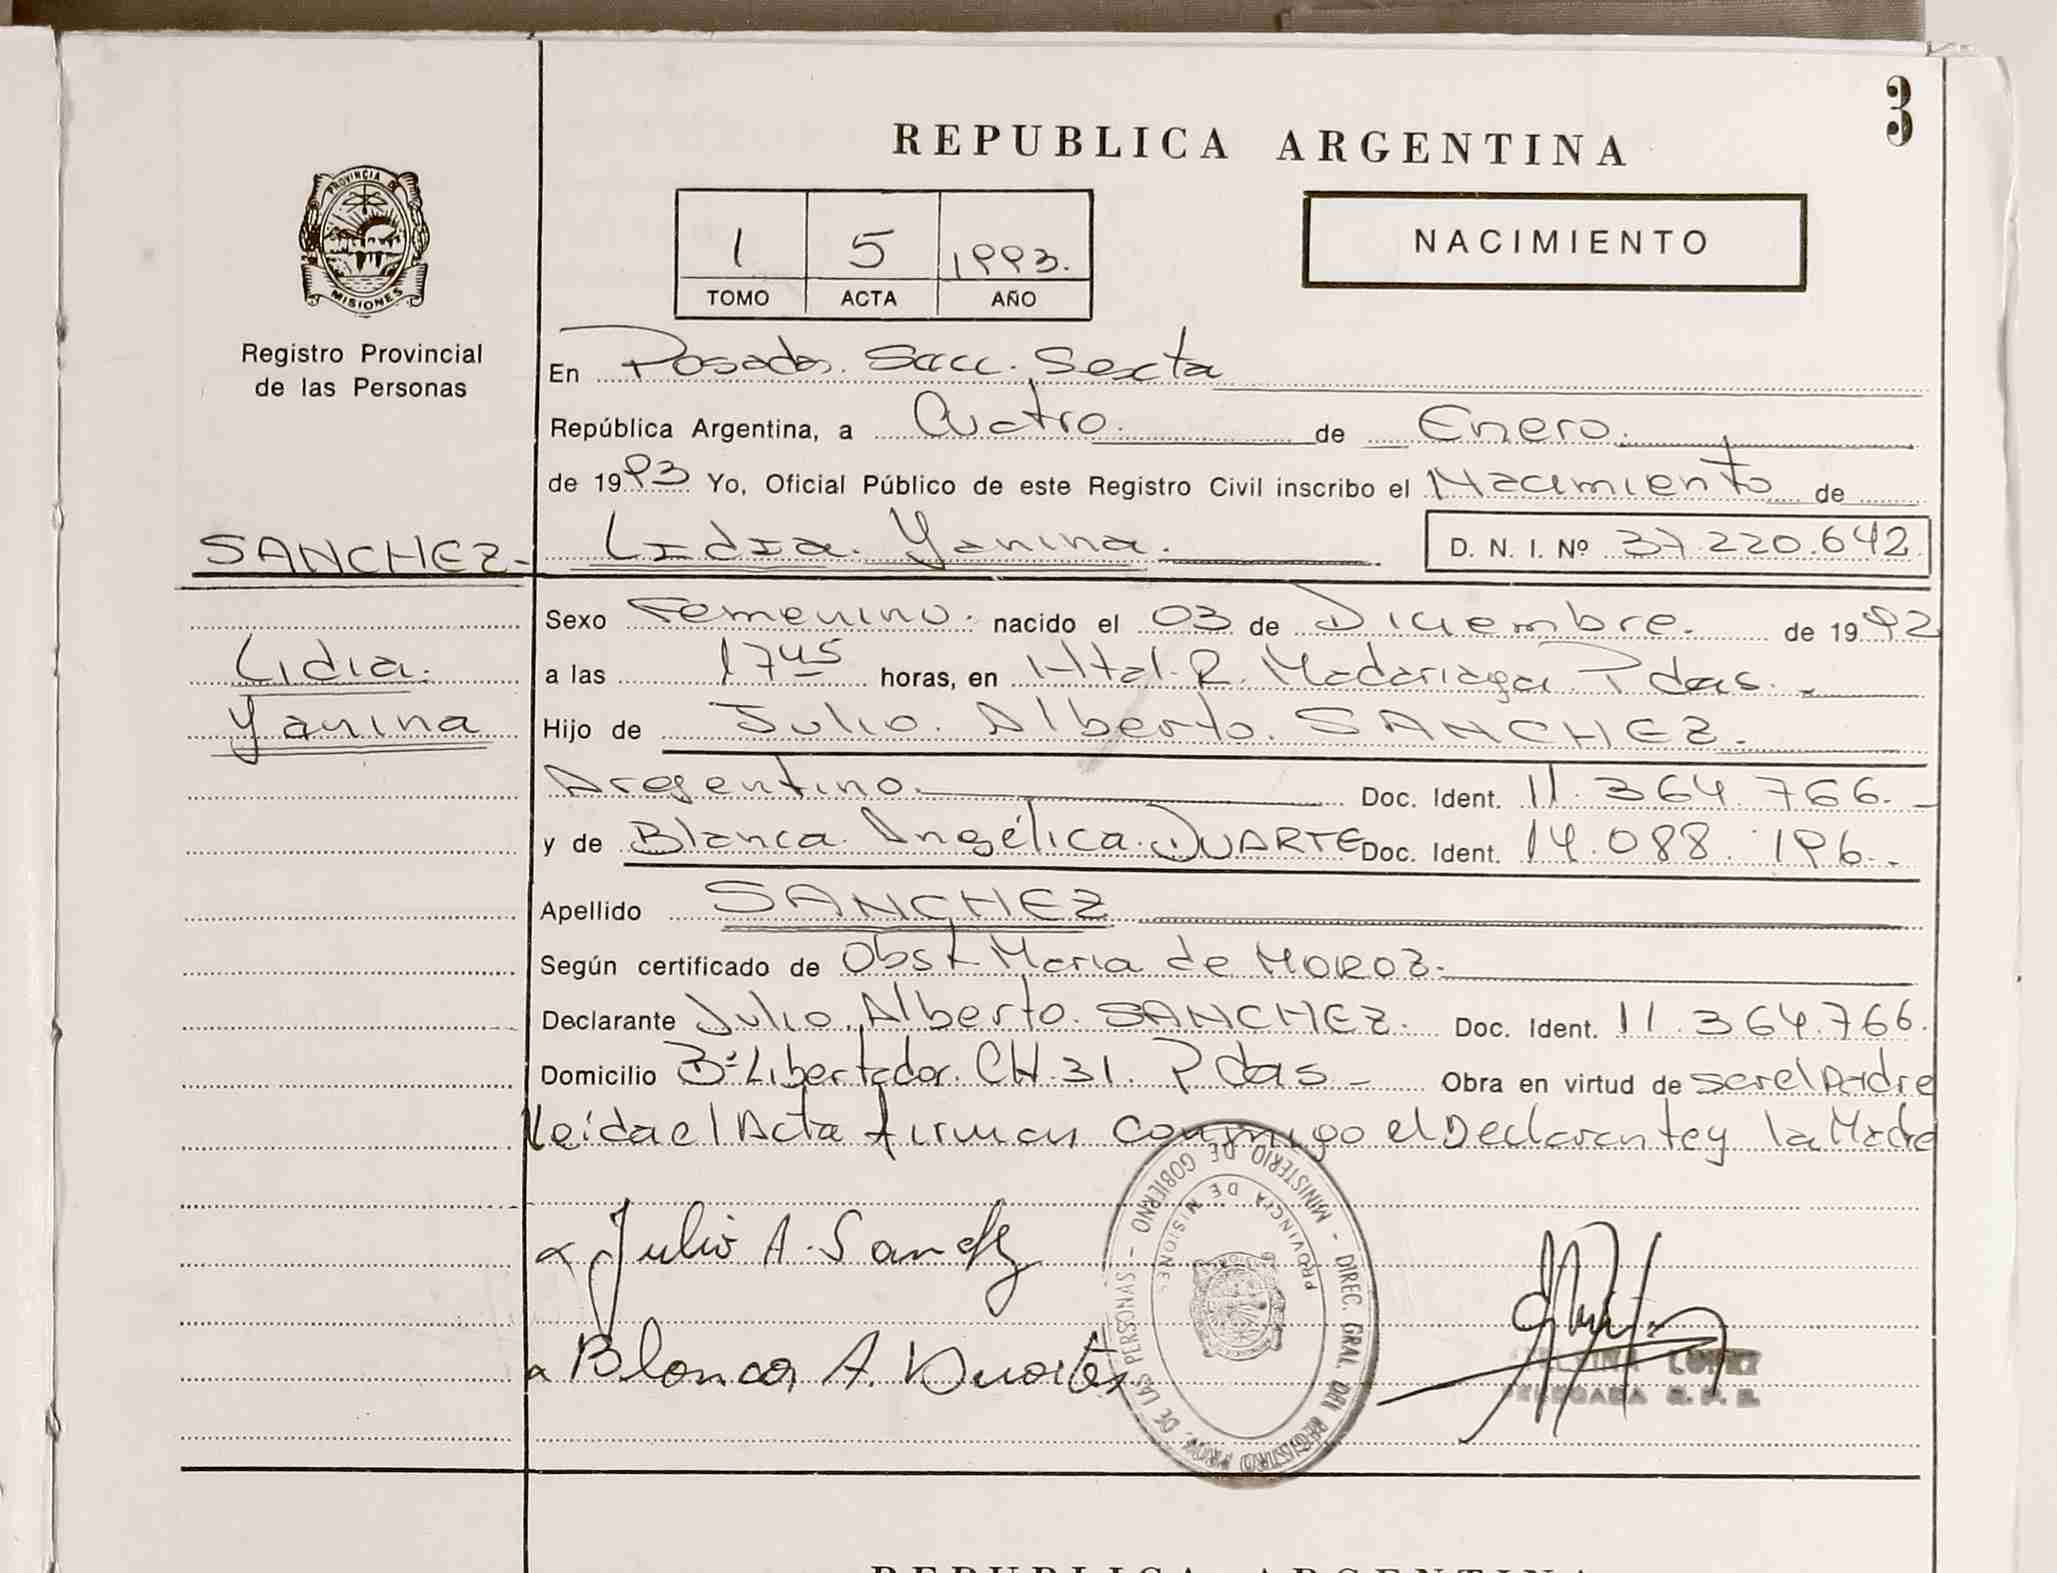 3
REPUBLICA ARGENTINA
PROVINCIA DE
MISIONES
Registro Provincial
de las Personas
1 5 1993.
TOMO ACTA AÑO
NACIMIENTO
En Posadas. Secc. Sexta
República Argentina, a Cuatro. de Enero.
de 1993 Yo, Oficial Público de este Registro Civil inscribo el Nacimiento de
SANCHEZ- Lidia. Yanina. D. N. I. Nº 37.220.642
Sexo Femenino. nacido el 03 de Diciembre. de 1992
Lidia. a las 17 45 horas, en Htal. R. Madariaga. Pdas. -
Yanina Hijo de Julio. Alberto. SANCHEZ.
Argentino. Doc. Ident. 11.364.766.-
y de Blanca. Angélica. DUARTE Doc. Ident. 14.088.196.-
Apellido SANCHEZ
Según certificado de Obst. Maria de MOROZ.
Declarante Julio. Alberto. SANCHEZ. Doc. Ident. 11.364.766.
Domicilio Bº Libertador. CH.31. Pdas - Obra en virtud de ser el Padre
Leida el Acta firman conmigo el Declarante y la Madre
Julio A. Sanchez
Blanca A. Duarte
MINISTERIO DE GOBIERNO - DIREC. GRAL. DEL REGISTRO PROV. DE LAS PERSONAS -
PROVINCIA DE MISIONES
LOPEZ
DELEGADA R. P. P.
REPUBLICA ARGENTINA